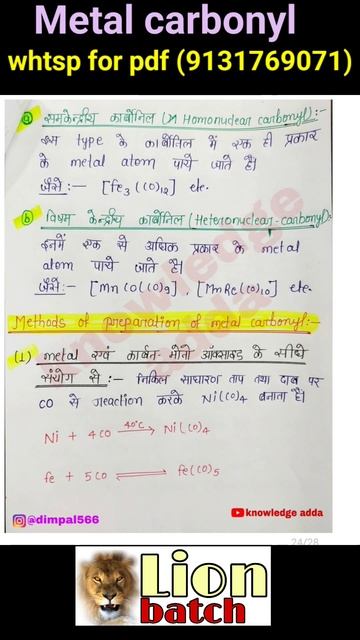 Metal carbonyl
whtsp for pdf (9131769071)
(a) समकेन्द्रीय कार्बोनिल (Homonuclear carbonyl):-
इस type के कार्बोनिल में एक ही प्रकार
के metal atom पाये जाते है।
जैसे:- [Fe3(CO)12] etc.
(b) विषम केन्द्रीय कार्बोनिल (Heteronuclear-carbonyl):-
इनमें एक से अधिक प्रकार के metal
atom पाये जाते है।
जैसे:- [MnCo(CO)9], [MnRe(CO)10] etc.
Methods of preparation of metal carbonyl:-
(1) metal एवं कार्बन-मोनो ऑक्साइड के सीधे
संयोग से:- निकिल साधारण ताप तथा दाब पर
CO से reaction करके Ni(CO)4 बनाता है।
Ni + 4CO 40°C→ Ni(CO)4
fe + 5CO ⇌ fe(CO)5
@dimpal566
knowledge adda
24/28
knowledge
adda
Lion
batch